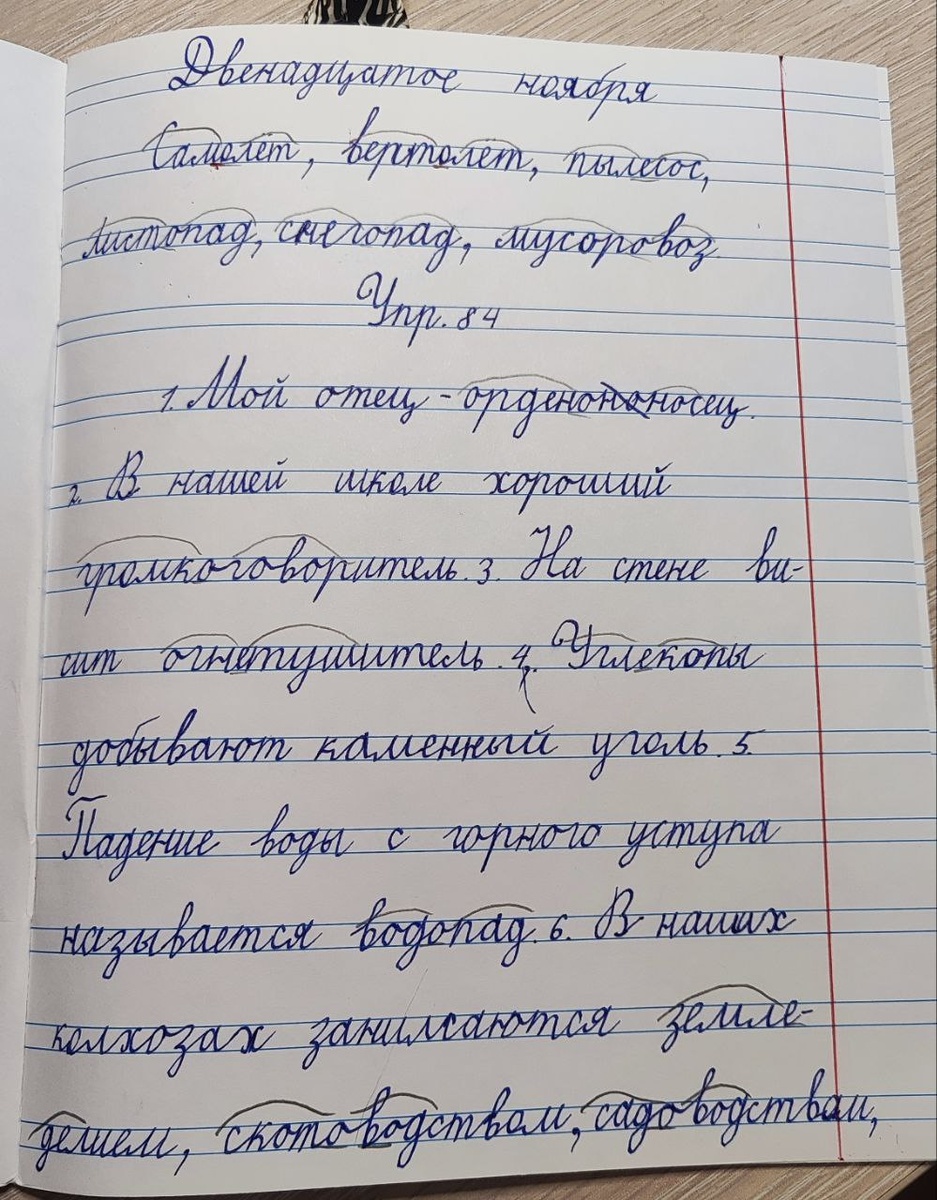 Двенадцатое ноября
Самолёт, вертолёт, пылесос,
листопад, снегопад, мусоровоз
Упр. 84
1. Мой отец - орденоносец.
2. В нашей школе хороший
громкоговоритель. 3. На стене ви-
сит огнетушитель. 4. Углекопы
добывают каменный уголь. 5.
Падение воды с горного уступа
называется водопад. 6. В наших
колхозах занимаются земле-
делием, скотоводством, садоводством,